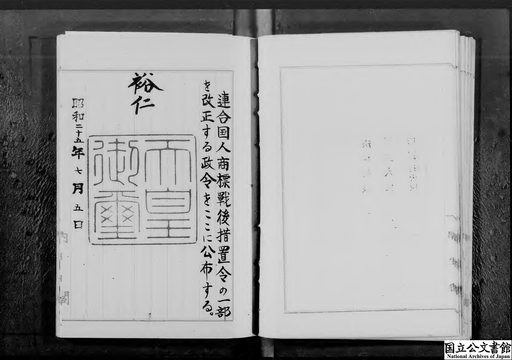 連合国人商標戦後措置令の一部
を改正する政令をここに公布する。
裕仁
天皇
御璽
昭和二十五年七月五日
国立公文書館
National Archives of Japan